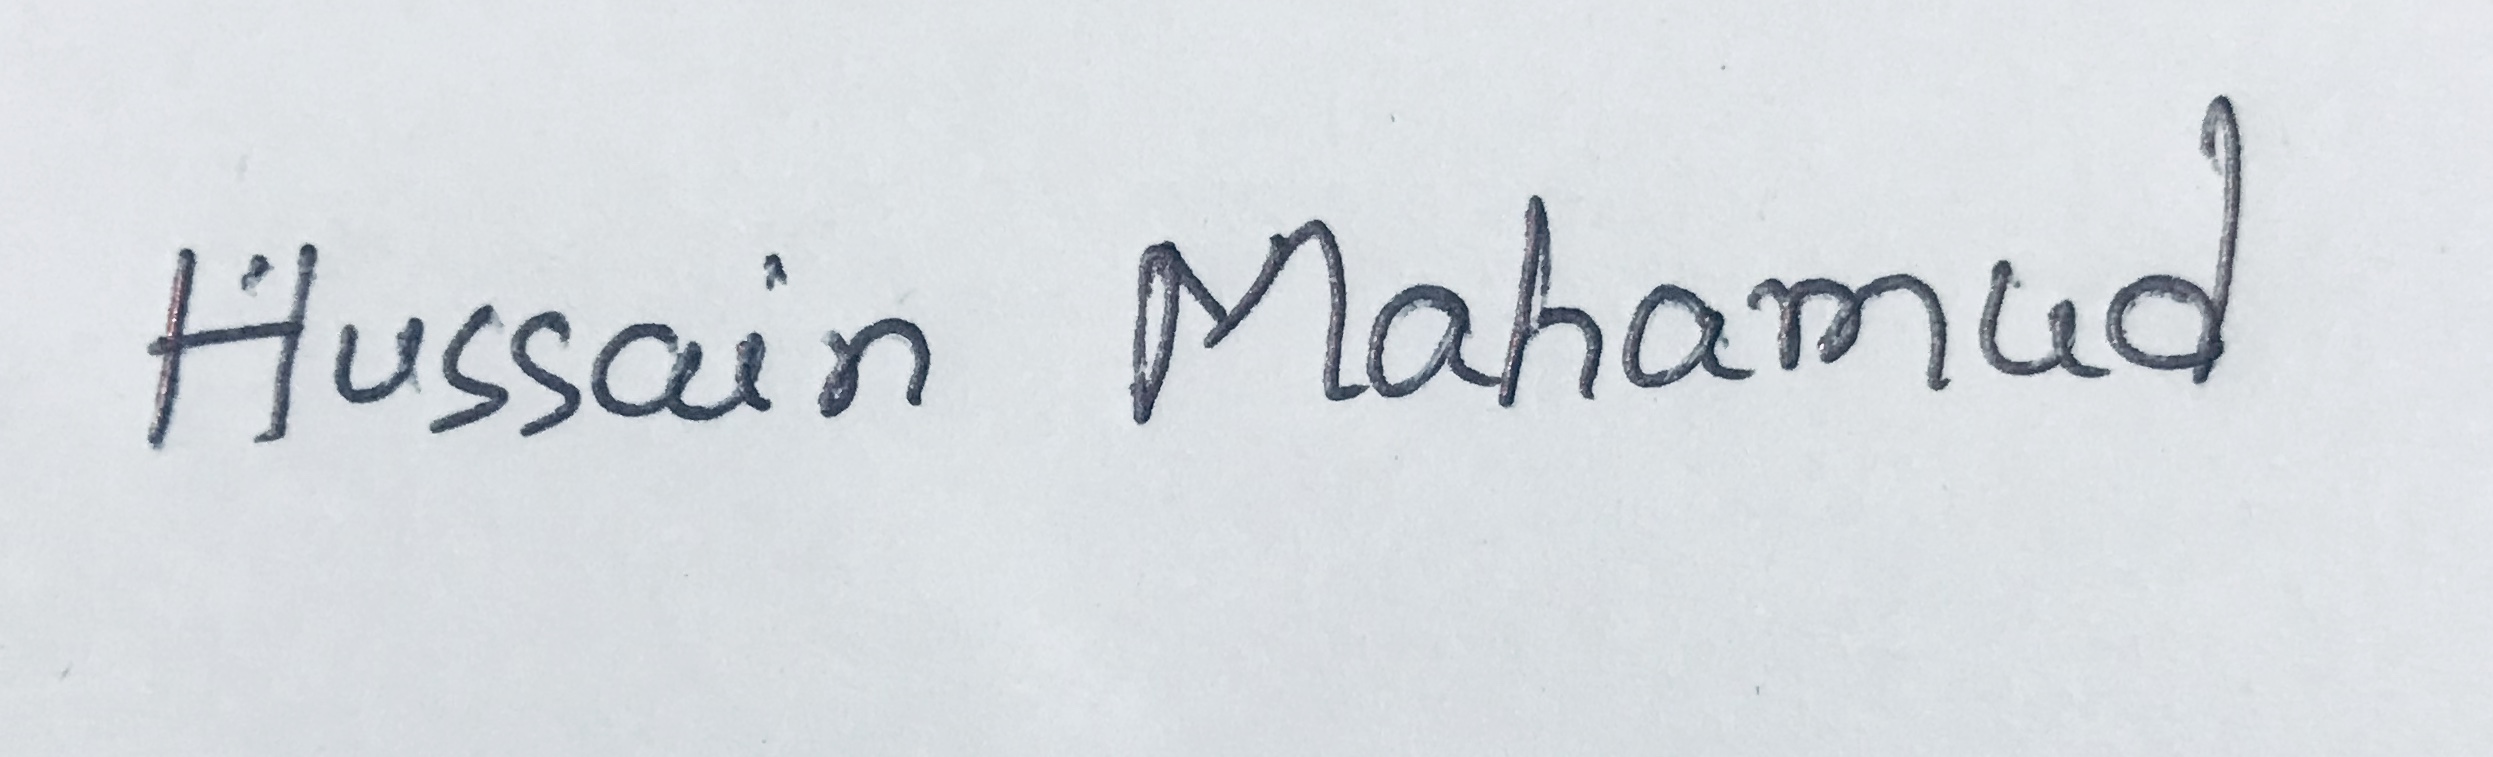 Hussain Mahamud